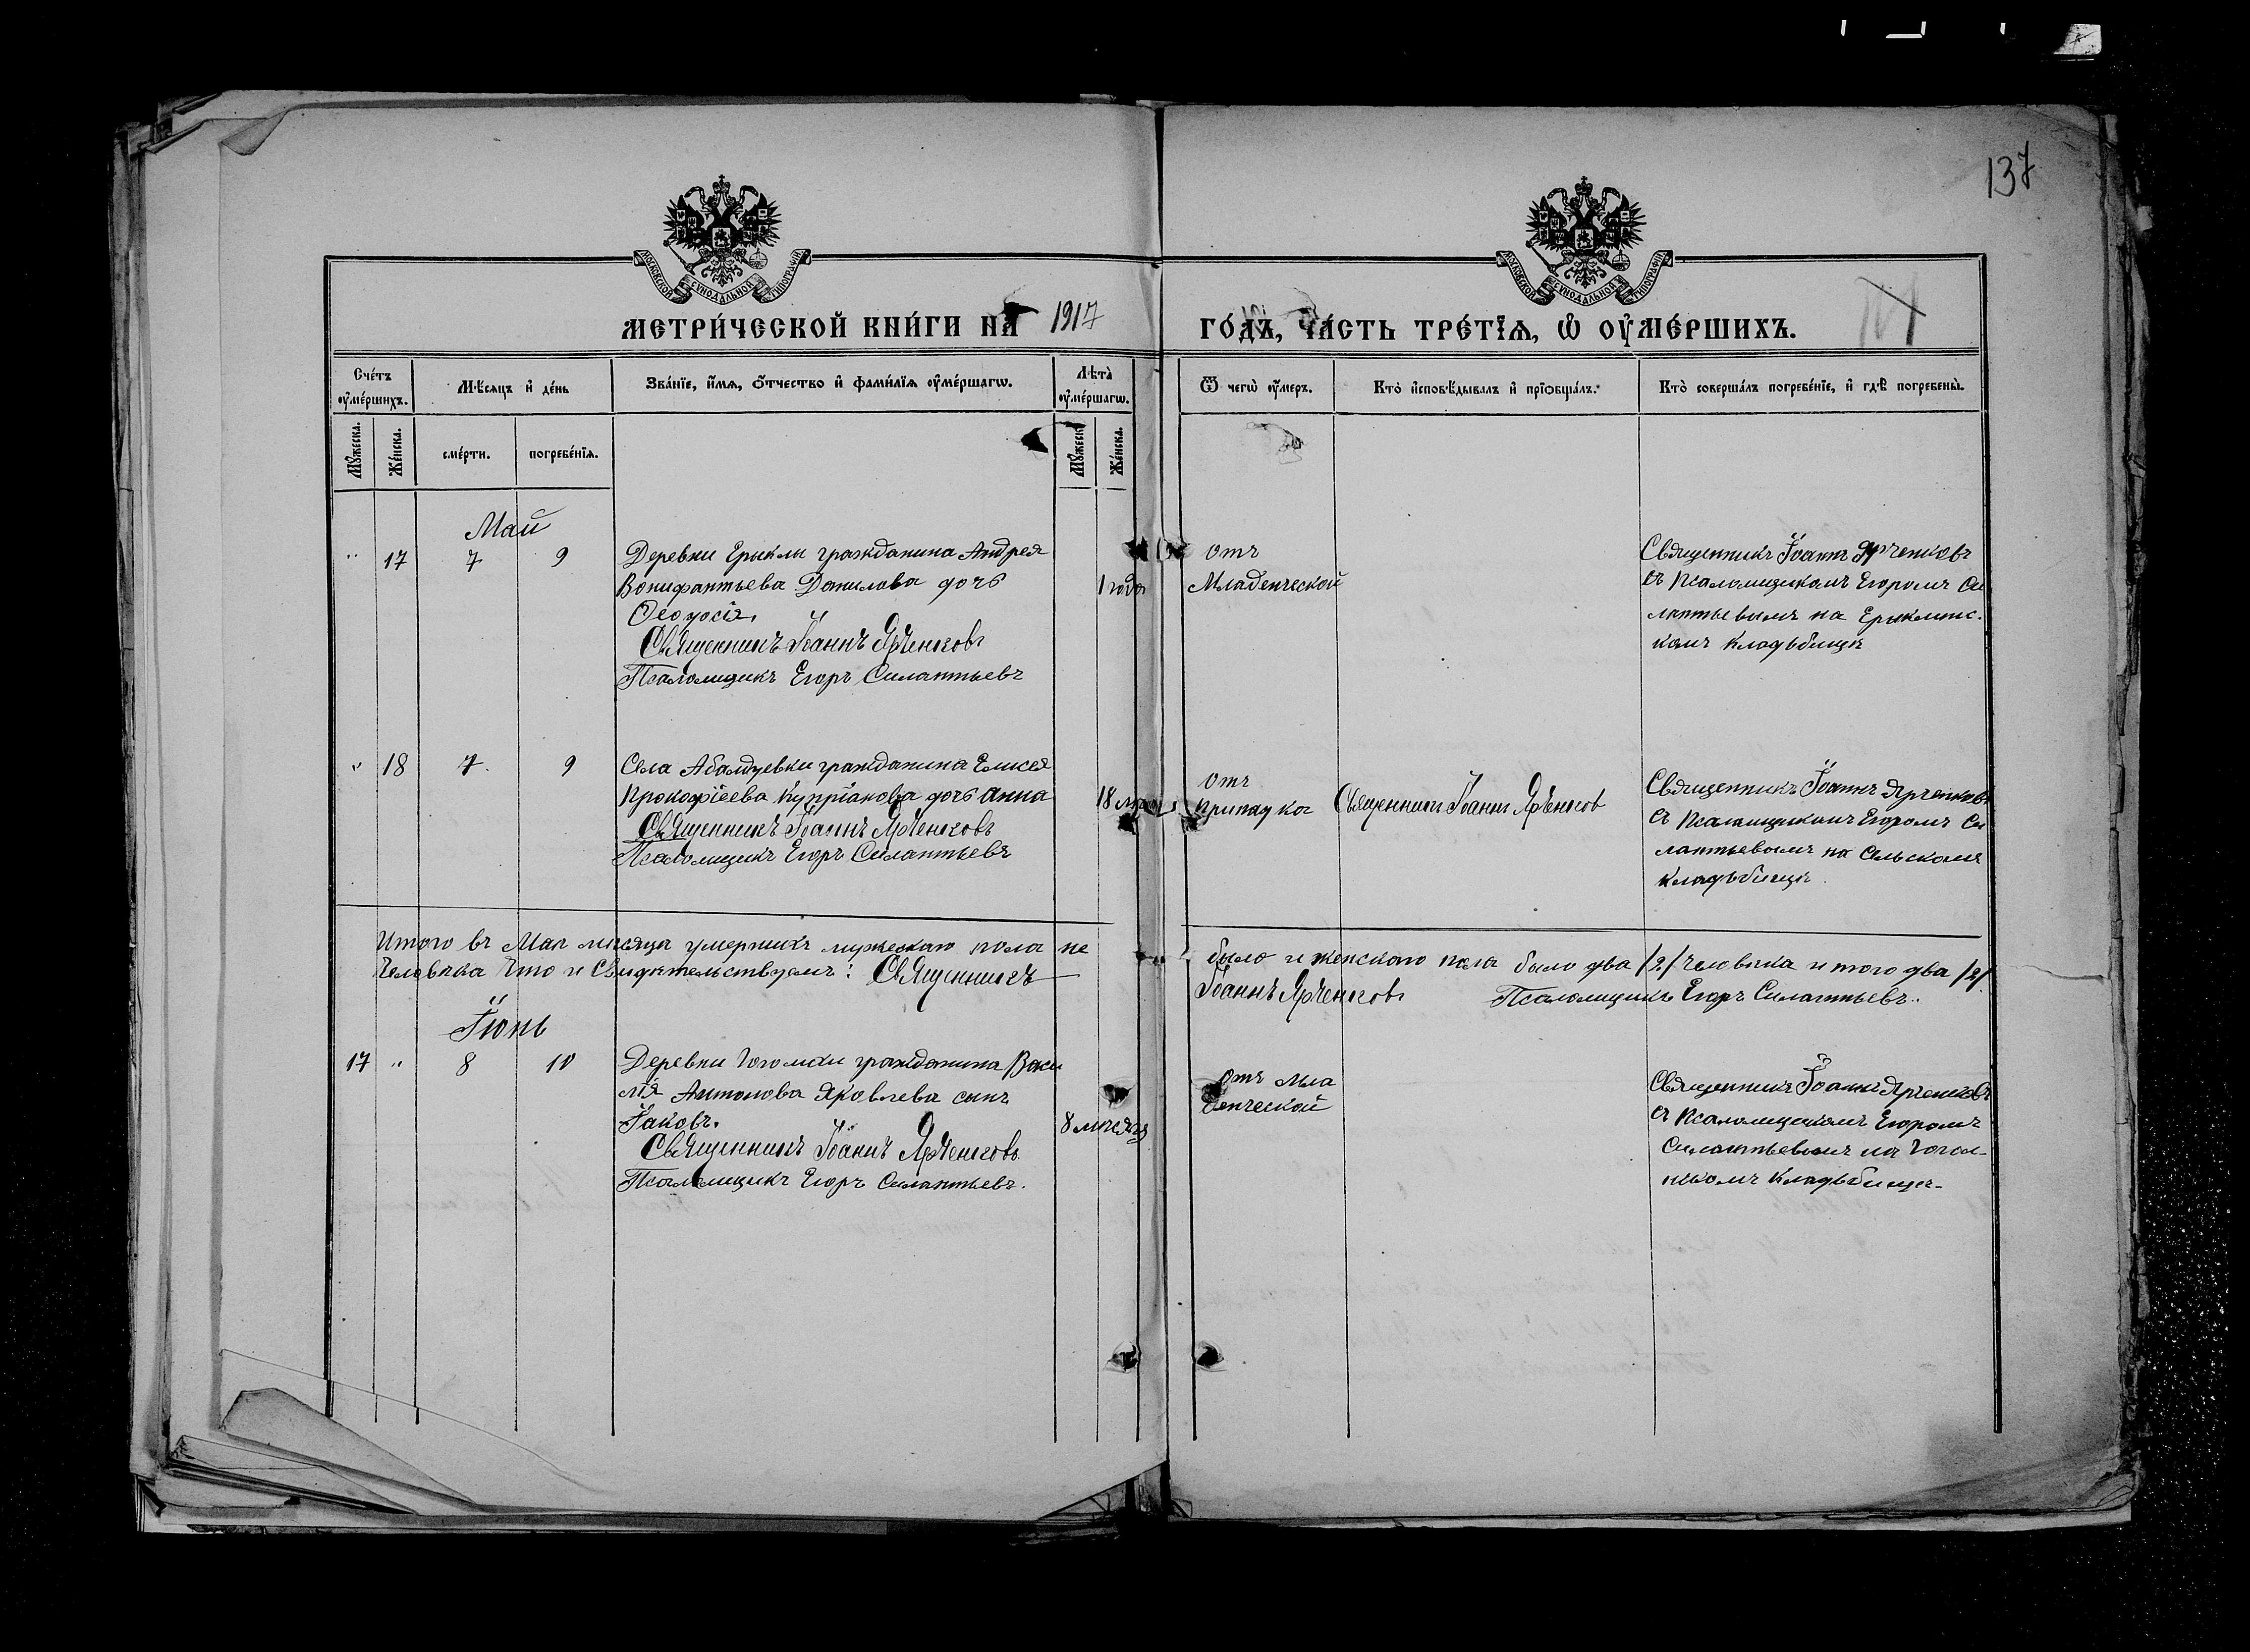 137
МОСКОВСКОЙ СУНОДАЛЬНОЙ ТИПОГРАФІИ
МОСКОВСКОЙ СУНОДАЛЬНОЙ ТИПОГРАФІИ
МЕТРИ́ЧЕСКОЙ КНИ́ГИ НА 1917
ГО́ДЪ, ЧА́СТЬ ТРЕ́ТІѦ, Ѡ ОУМЕ́РШИХЪ.
Сче́тъ оуме́ршихъ.
Мѣ́сяцъ и де́нь
Зва́нїе, и́мѧ, о́тчество и фами́лїѧ оуме́ршагѡ.
Лѣта̀ оуме́ршагѡ.
Ѿ чегѡ̀ оу́меръ.
Кто̀ исповѣ́дывалъ и прїѡбща́лъ.
Кто̀ соверша́лъ погребе́нїе, и гдѣ̀ погребены̀.
Мꙋ́жеска.
Же́нска.
сме́рти.
погребе́нїѧ.
Мꙋ́жеска
Же́нска.
Май
" 17 7 9
Деревни Ерыкли гражданина Андрея
Вонифантьева Данилова дочь
Ѳеодосія.
Священникъ Іоаннъ Ярченковъ
Псаломщикъ Егоръ Силантьевъ
1 года
отъ
Младенческой
Священникъ Іоаннъ Ярченковъ
съ псаломщикомъ Егоромъ Си
лантьевымъ на Ерыклинс.
комъ кладбищѣ
" 18 7. 9
Села Абалдуевки гражданина Елисея
Прокофіеева Купріанова дочь Анна
Священникъ Іоаннъ Ярченковъ
Псаломщикъ Егоръ Силантьевъ
18
отъ
припадка
Священникъ Іоаннъ Ярченков
Священникъ Іоаннъ Ярченковъ
съ псаломщикомъ Егоромъ Си
лантьевымъ на Сельскомъ
кладбищѣ.
Итого въ Маѣ мѣсяцѣ умершихъ мужескаго пола не
было и женскаго пола было два /2/ человѣка итого два /2/
человѣка что и свидѣтельствуемъ: Священникъ
Іоаннъ Ярченковъ Псаломщикъ Егоръ Силантьевъ.
Іюнь
17 " 8 10
Деревни гражданина Васи
лія Антонова Яковлева сынъ
Іаковъ.
Священникъ Іоаннъ Ярченковъ.
Псаломщикъ Егоръ Силантьевъ.
8 мѣсяцъ
отъ мла
денческой
Священникъ Іоаннъ Ярченковъ
съ псаломщикомъ Егоромъ
Силантьевымъ на
кладбищѣ.